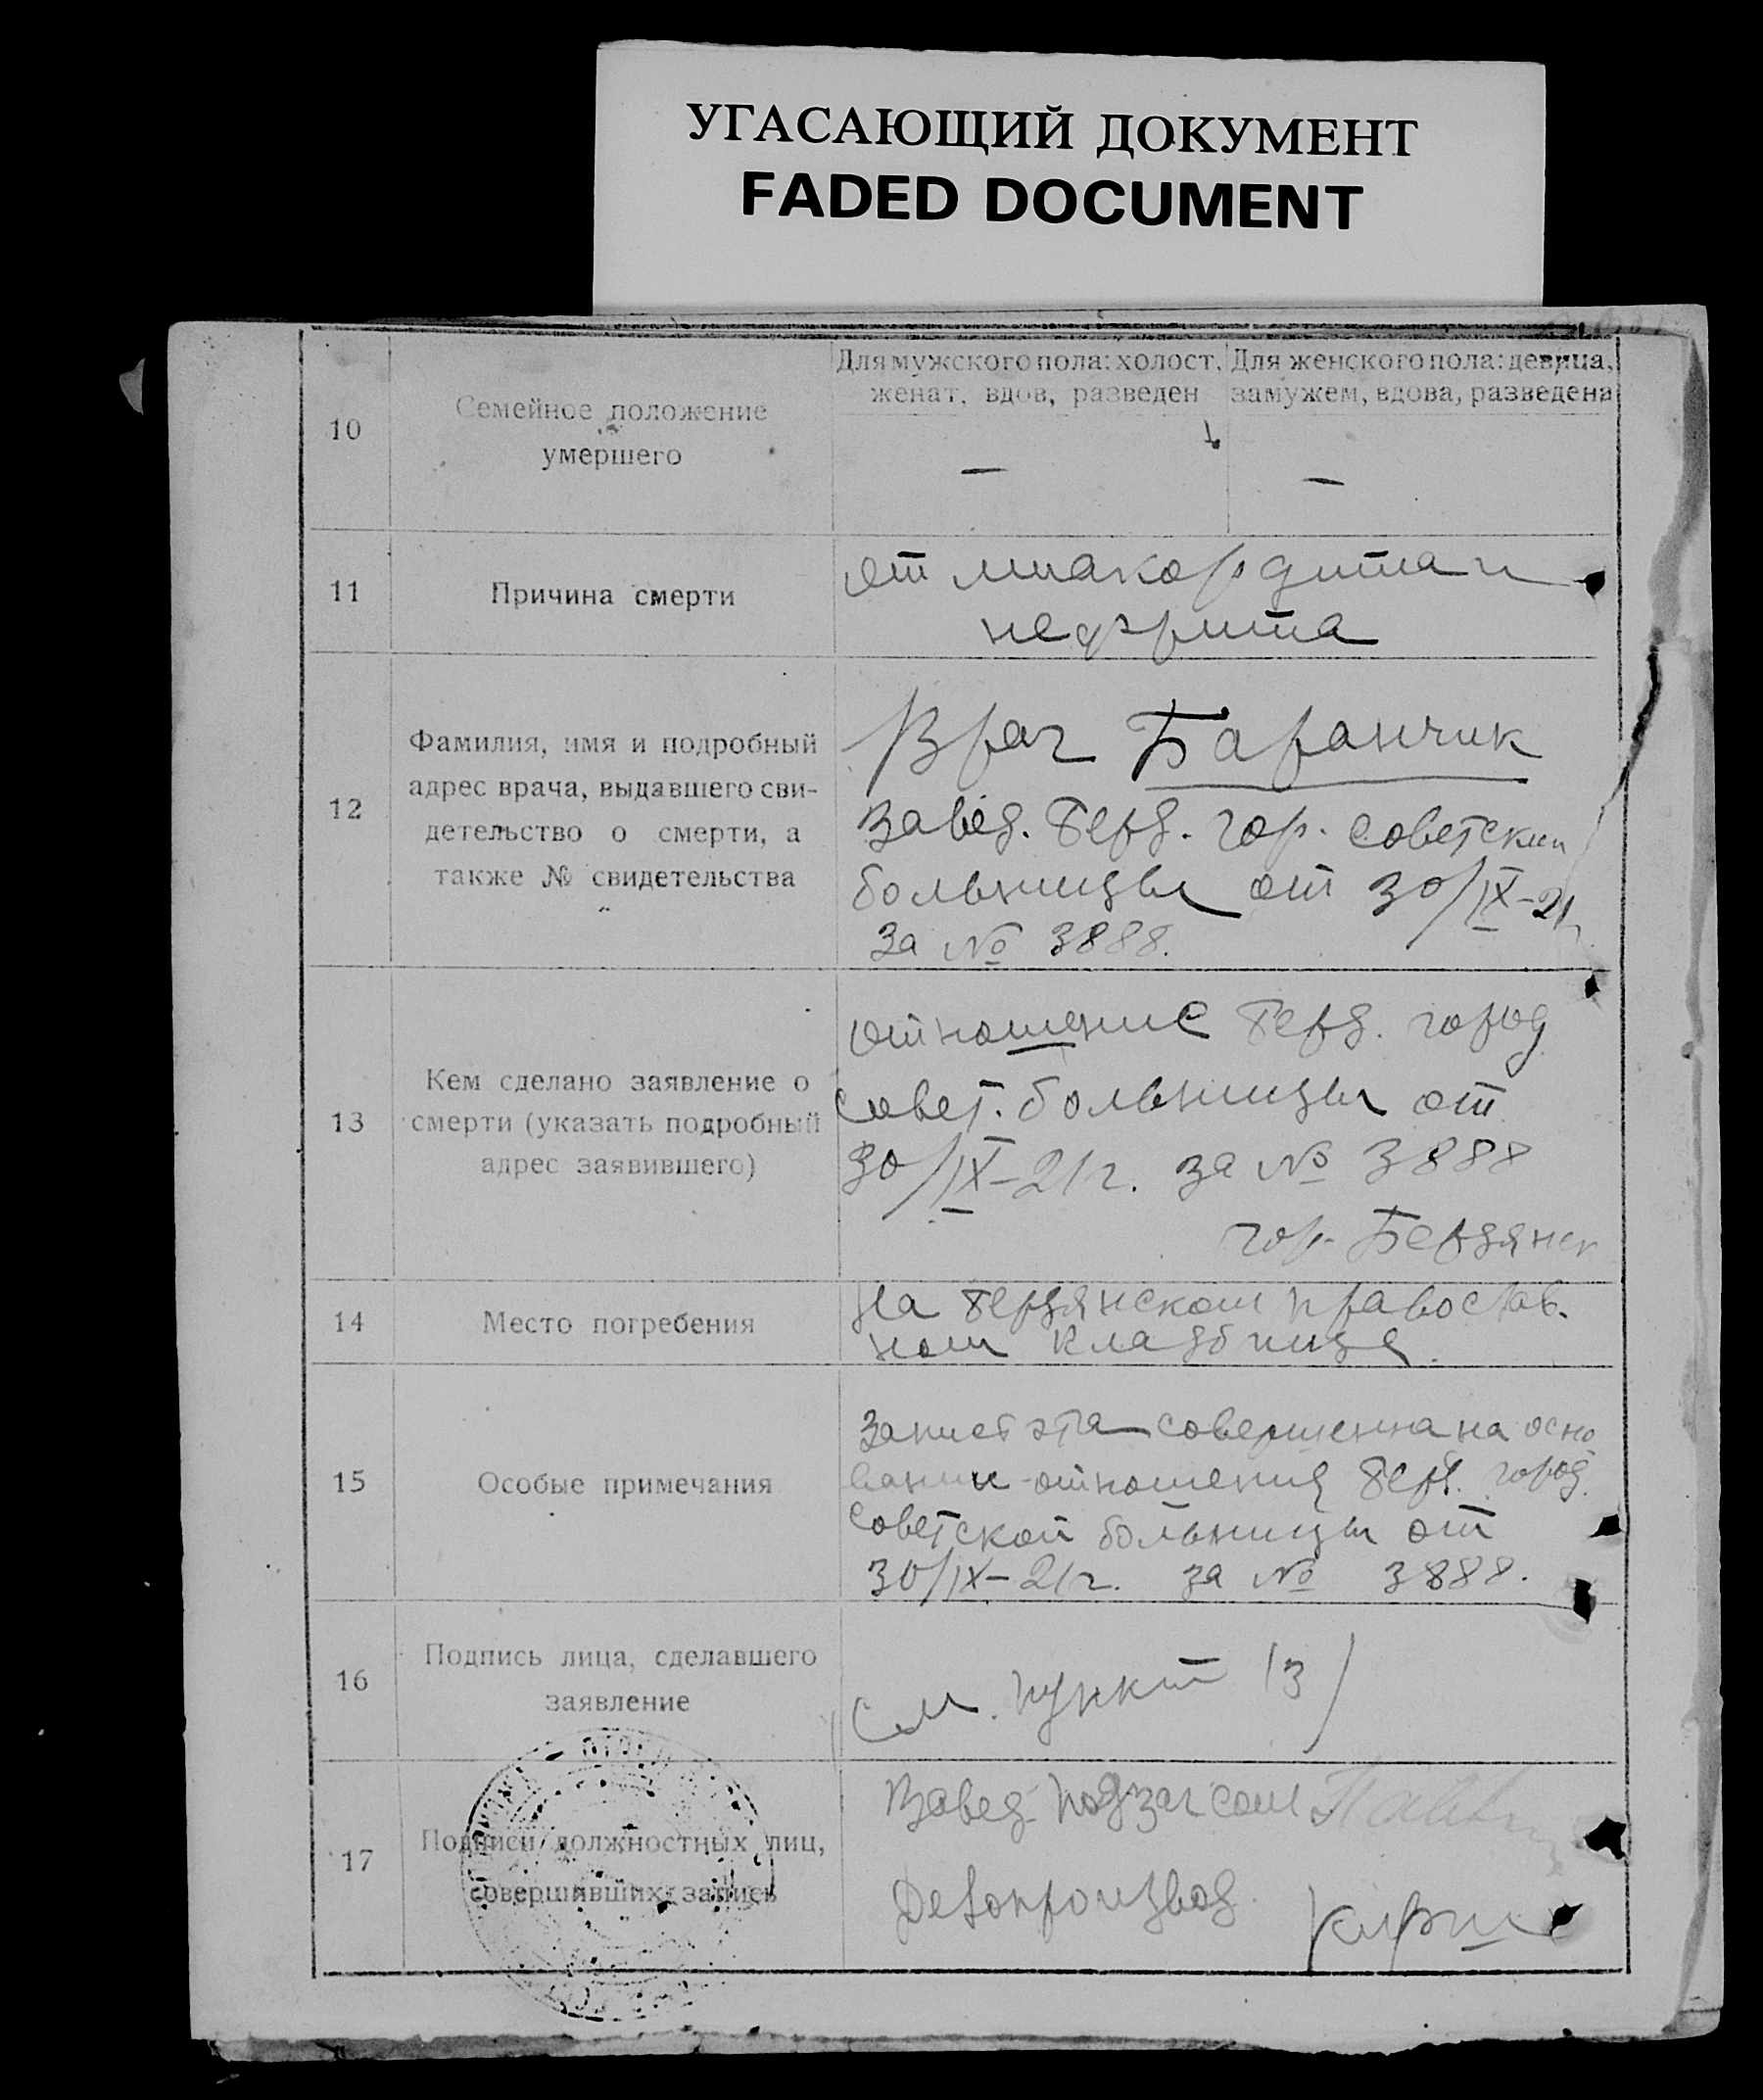 УГАСАЮЩИЙ ДОКУМЕНТ
FADED DOCUMENT
10
Семейное положение
умершего
Для мужского пола: холост,
женат, вдов, разведен
Для женского пола: девица,
замужем, вдова, разведена
—
—
11
Причина смерти
от миакордита и
нефрита
12
Фамилия, имя и подробный
адрес врача, выдавшего сви-
детельство о смерти, а
также № свидетельства
Врач Баранчик
Завед. Берд. гор. советский
больницы от 30/IX-21г
за № 3888.
13
Кем сделано заявление о
смерти (указать подробный
адрес заявившего)
отношение Берд. город
совет. больницы от
30/IX-21г. за № 3888
гор. Бердянск
14
Место погребения
На Бердянском православ.
ном кладбище.
15
Особые примечания
Запись эта совершенна на осно
вании отношения Берд. город.
советской больницы от
30/IX-21г. за № 3888.
16
Подпись лица, сделавшего
заявление
См. пункт 13
17
Подписи должностных лиц,
совершивших запись
Завед. подзагсом
Делопроизвод.